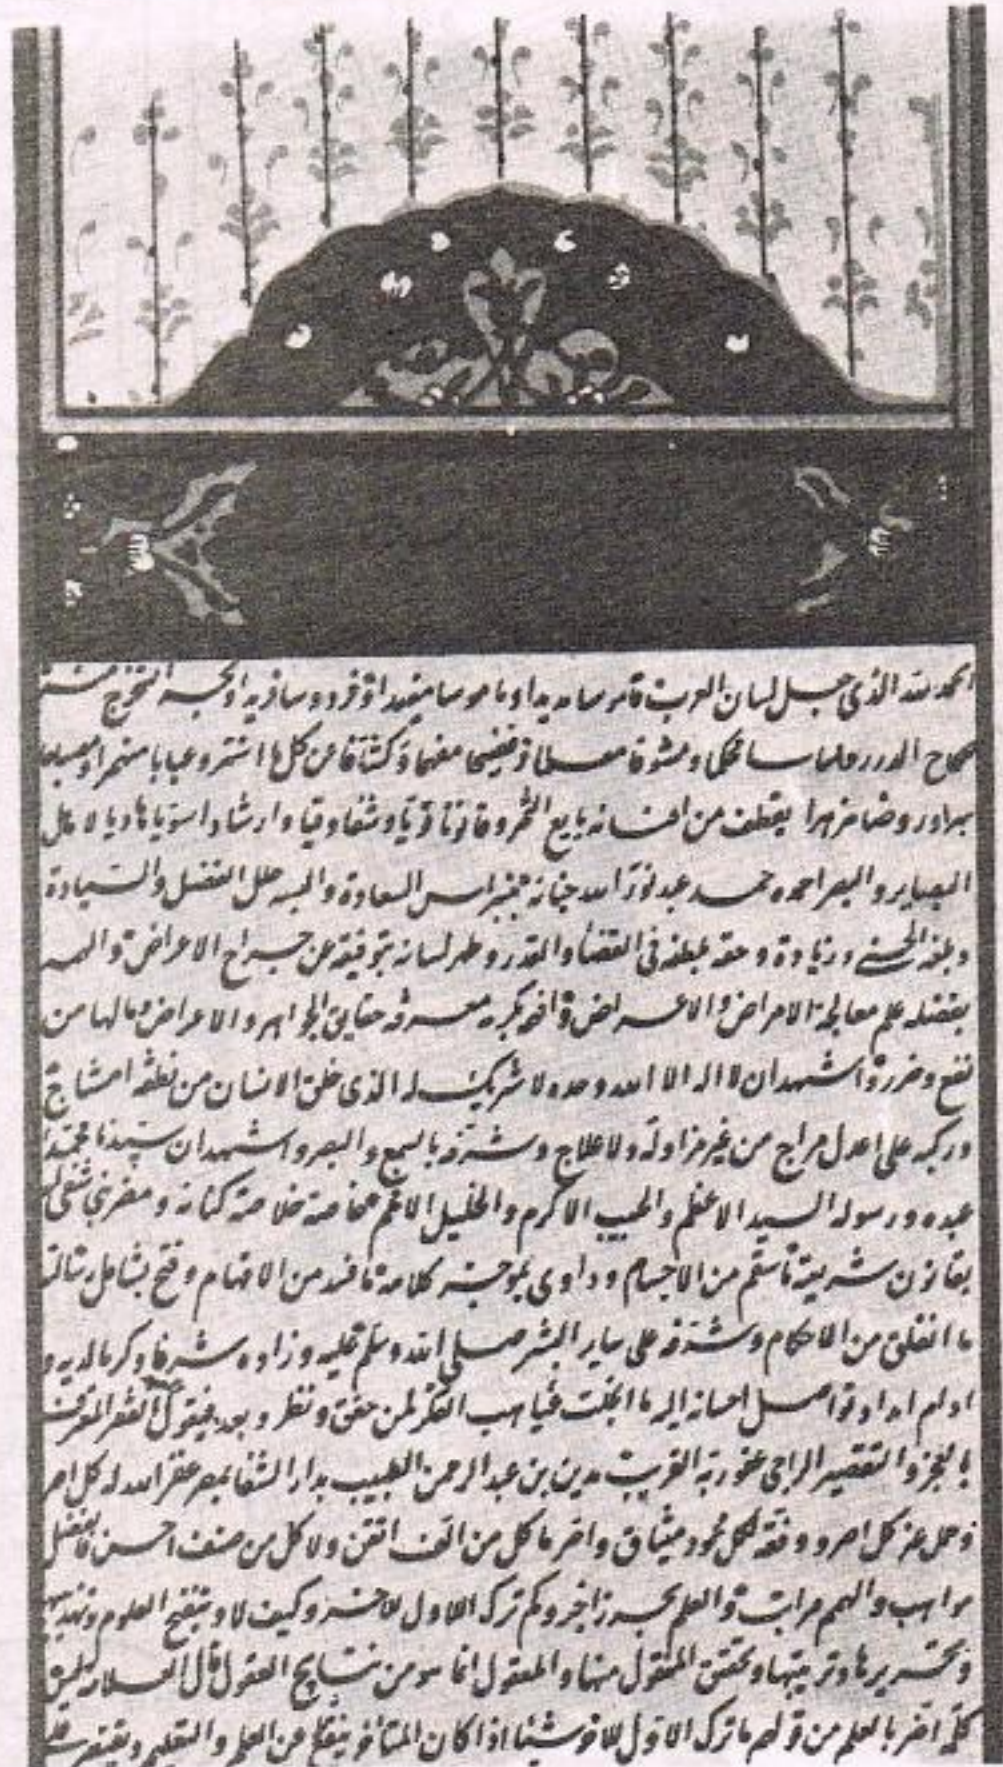 الحمد لله الذى جعل لسان العرب قاموسا مديدا وناموسا مفيدا وفردوسا فريدا ولجه استخرج
صحاح الدرر علما سامحكما ومشوفا معلما وفيضحا مفهما وكشافا عن كل ما استتر وعبابا منهمرا ومصباحا
وروضا مزهرا يقتطف من افنانه يانع الثمر وقانونا وشفا وارشادا هاديا لاهل
البصاير والبصر احمده حمد عبد نور الله جنانه بنبراس السعادة والبسه حلل الفضل والسيادة
وبلغه الحسنى وزيادة وحفه بلطفه فى القضا والقدر وطهر لسانه بتوفيقه عن جراح الاعراض والهمه
بفضله علم معالجة الامراض والاعراض بكرمه معرفة حقايق الجواهر والاعراض ومالها من
نفع وضرر واشهد ان لا اله الا الله وحده لا شريك له الذى خلق الانسان من نطفه امشاج
وركبه على اعدل مزاج من غير مزاولة ولا علاج وشرفه بالسمع والبصر واشهد ان سيدنا محمدا
عبده ورسوله السيد الاعظم والحبيب الاكرم والخليل الافخم خلاصة كنانه ومضر شفى
بقانون شريعته ماسقم من الاجسام وداوى بموجز كلامه مافسد من الافهام وفتح
ما انغلق من الاحكام وشرفه على ساير البشر صلى الله وسلم عليه وزاده شرفا وكرما لديه و
ادام امداده واصل احسانه اليه ما انجلت غياهب الفكر لمن حقق ونظر وبعد فيقول المعترف
بالعجز والتقصير الراجى عفو ربه القريب مدين بن عبد الرحمن الطبيب بدار الشفا بمصر غفر الله له كل اصر
وحمل عنه كل اصر ووفقه لكل محمود ما كل من الف اتقن ولا كل من صنف احسن فالفضل
مواهب والهمم مراتب والعلم بحر زاخر وكم ترك الاول للاخر وكيف لا وتنقيح العلوم وتهذيبها
وتحريرها وترتيبها وتحقيق المنقول منها والمعقول انما هو من نتايج العقول قال العلما ليس
كلمة اضر بالعلم من قولهم ما ترك الاول للاخر شيئا اذا كان المتاخر عن العلم والتعليم ويقتصر على